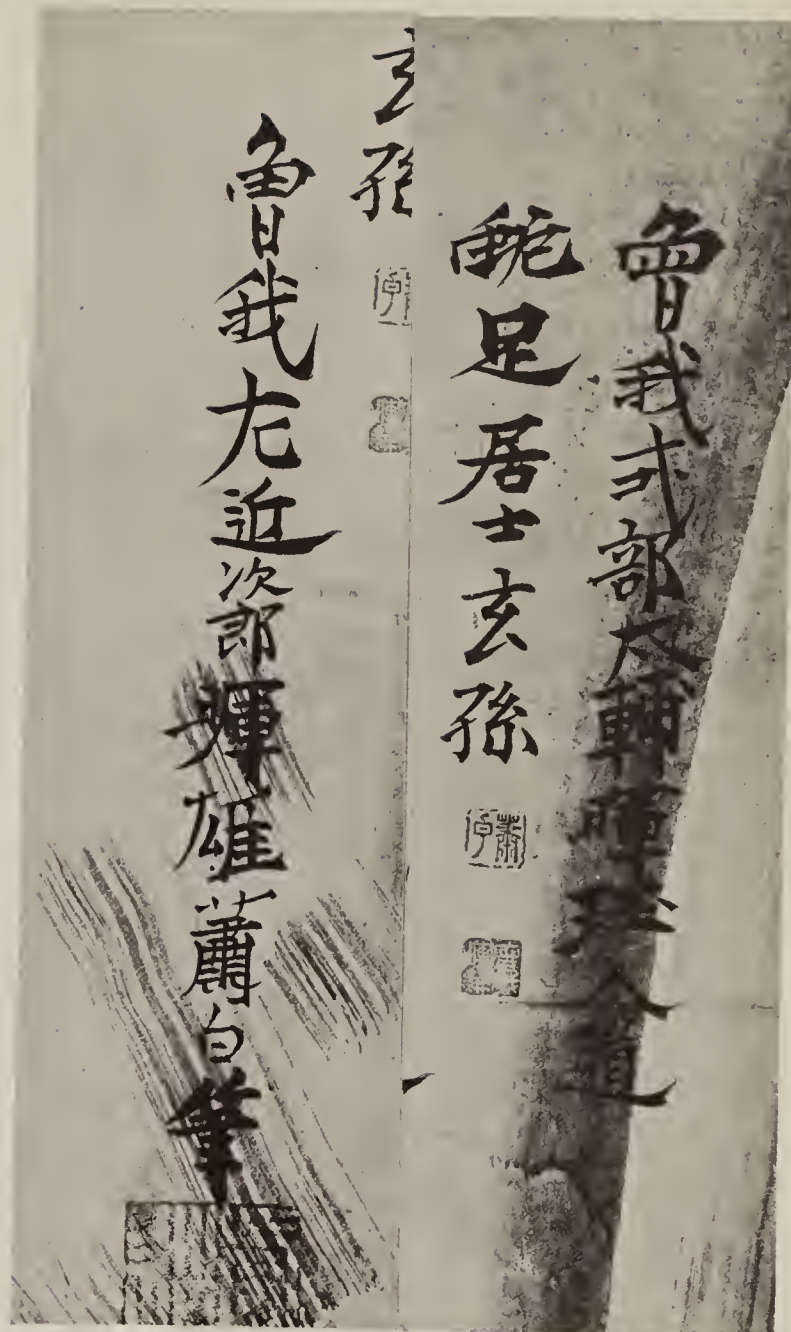 曾我式部太輔暉入道
蛇足居士玄孫
玄孫
曾我左近次郎暉雄蕭白筆